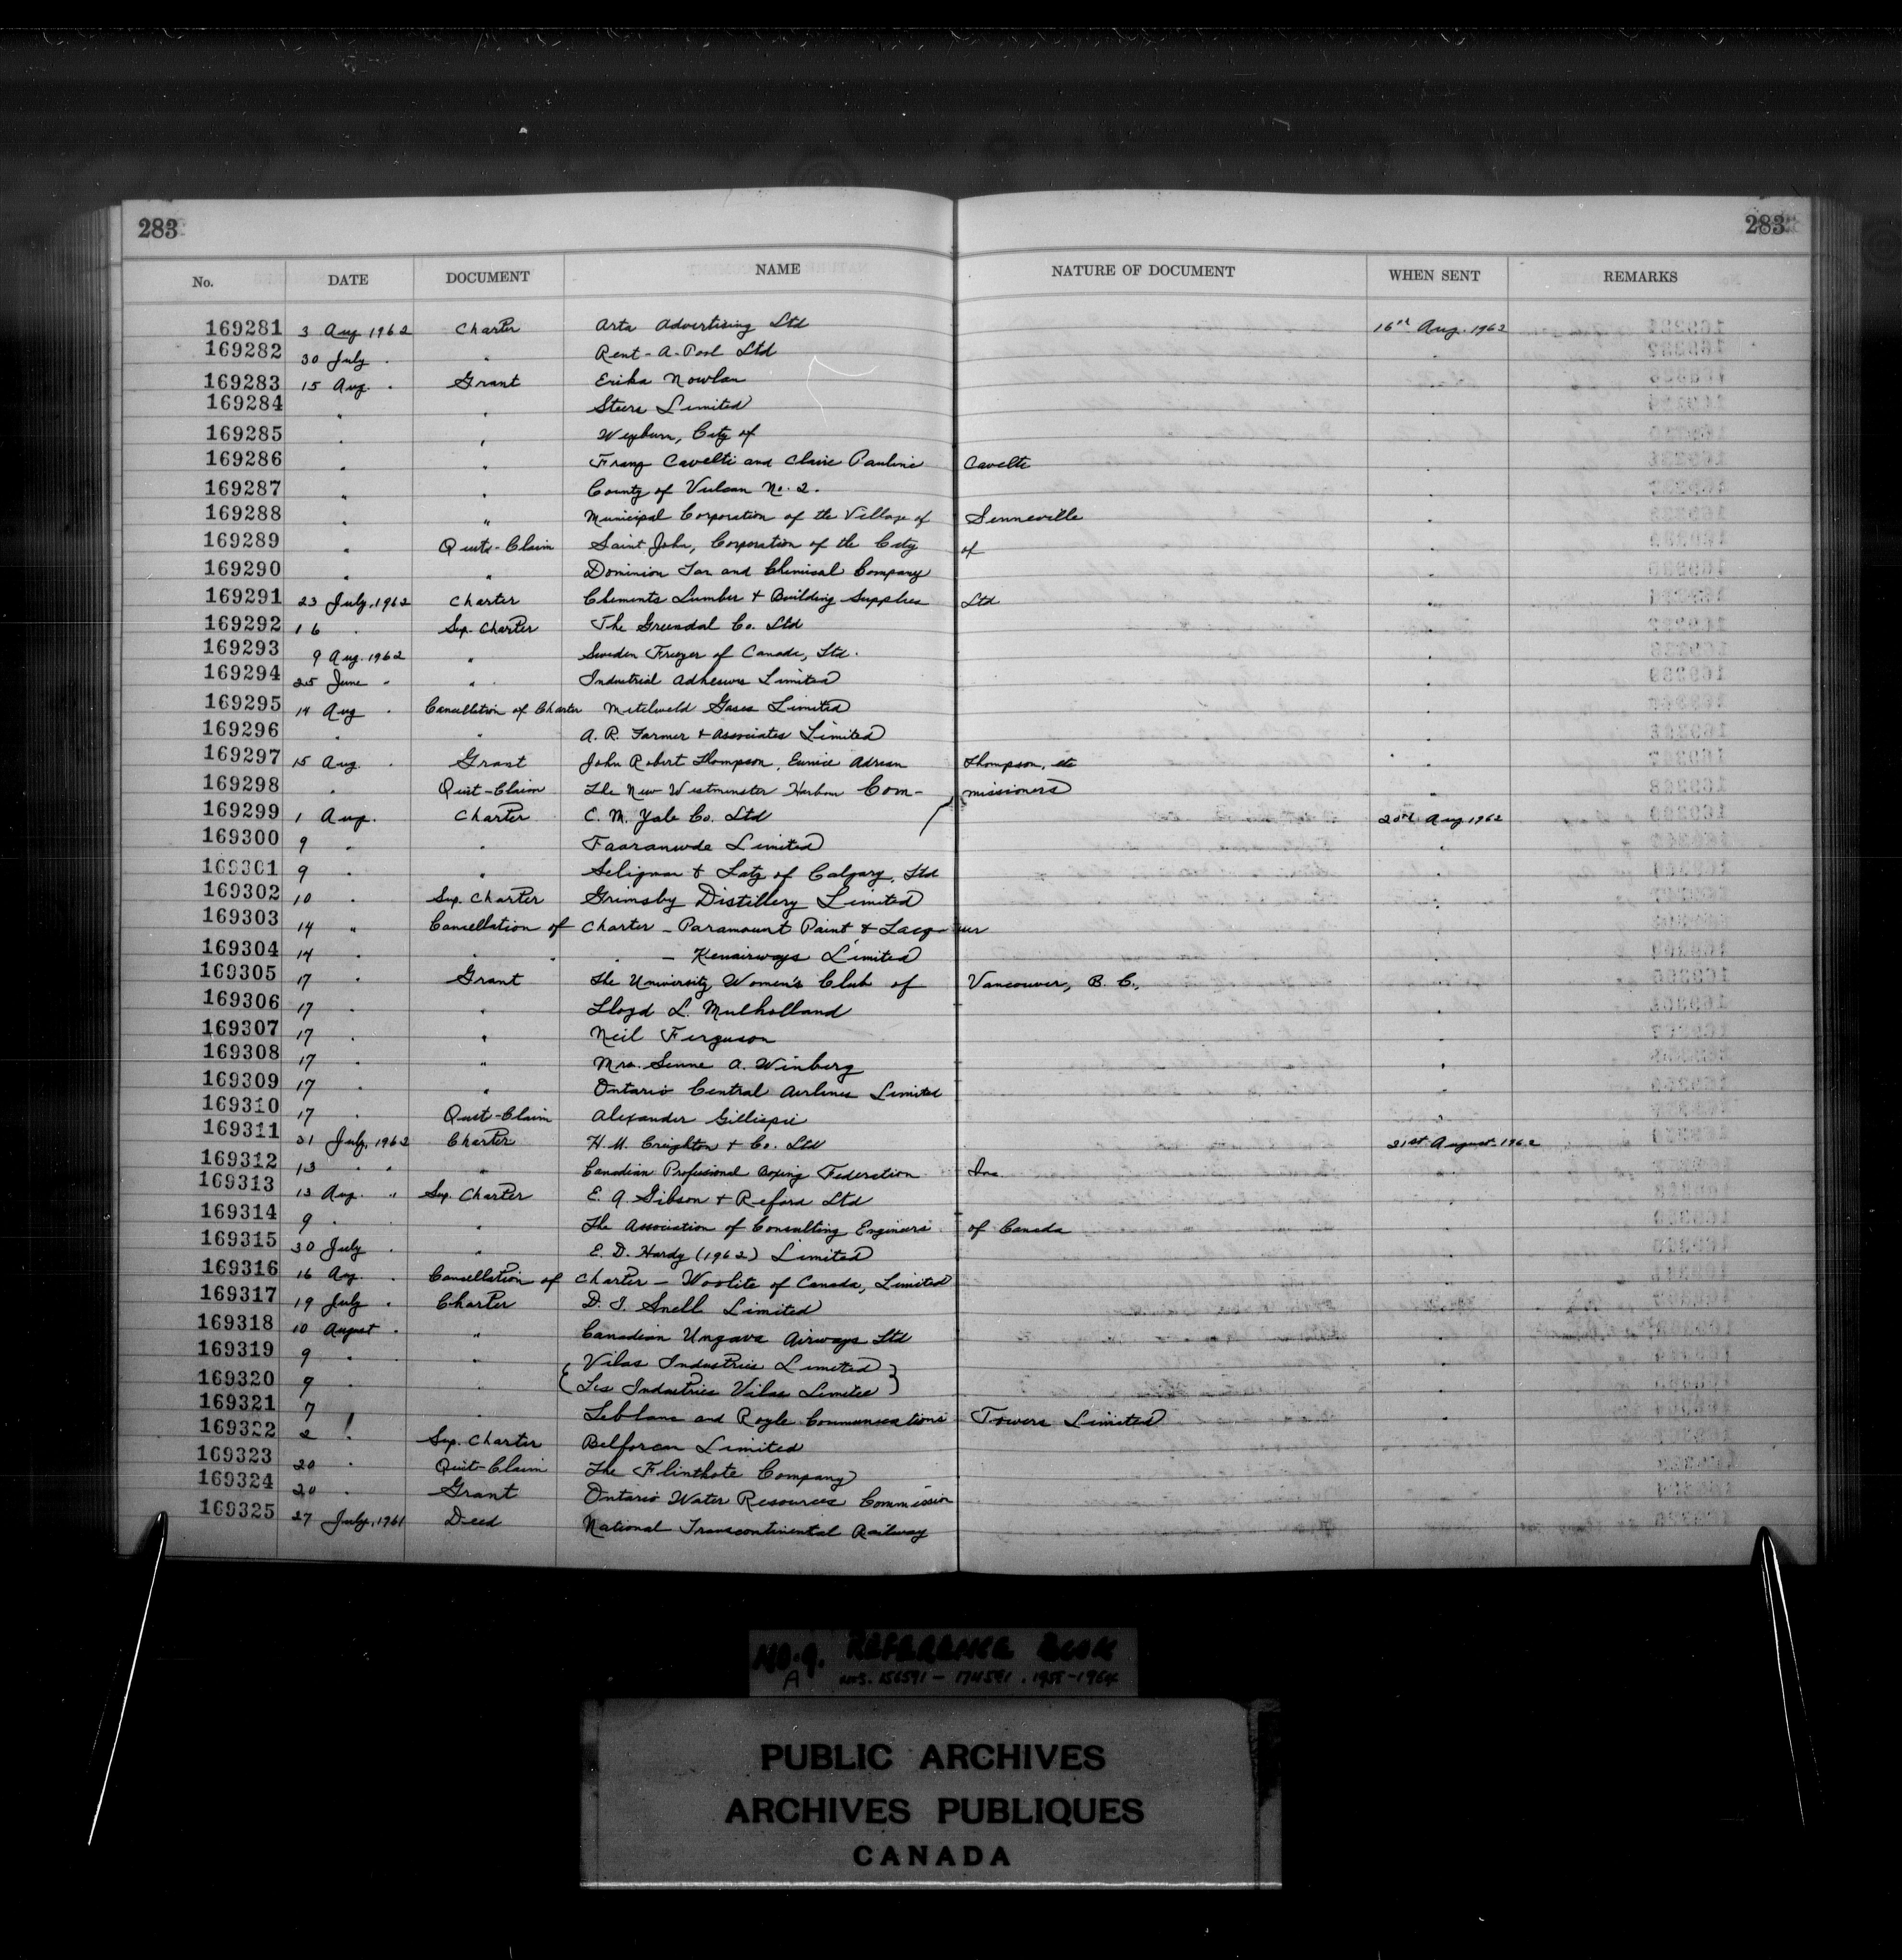 283 283
No. DATE DOCUMENT NAME NATURE OF DOCUMENT WHEN SENT REMARKS
169281 3 Aug 1962 Charter Arta Advertising Ltd 16th Aug. 1962
169282 30 July " " Rent-A-Pool Ltd "
169283 15 Aug. " Grant Erika Nowlan "
169284 " " Steers Limited "
169285 " " Weyburn, City of "
169286 " " Franz Cavelti and Claire Pauline Cavelti "
169287 " " County of Vulcan No. 2. "
169288 " " Municipal Corporation of the Village of Senneville "
169289 " Quit-Claim Saint John, Corporation of the City of "
169290 " " Dominion Tar and Chemical Company "
169291 23 July, 1962 Charter Clements Lumber + Building Supplies Ltd "
169292 16 " Sup. Charter The Greendal Co. Ltd "
169293 9 Aug. 1962 " Sweden Freezer of Canada, Ltd. "
169294 25 June " " Industrial Adhesives Limited "
169295 14 Aug " Cancellation of Charter Metalweld Gases Limited "
169296 " " A. R. Farmer + Associates Limited "
169297 15 Aug. " Grant John Robert Thompson, Eunice Adrian Thompson, etc "
169298 " Quit-Claim The New Westminster Harbour Com- missioners "
169299 1 Aug. Charter C. M. Yale Co. Ltd 20th Aug 1962
169300 9 " " Faaranwde Limited "
169301 9 " " Seligman & Latz of Calgary, Ltd "
169302 10 " Sup. Charter Grimsby Distillery Limited "
169303 14 " Cancellation of Charter - Paramount Paint & Lacquer "
169304 14 " " " " - Kenairways Limited "
169305 17 " Grant The University Women's Club of Vancouver, B. C., "
169306 17 " " Lloyd L. Mulholland "
169307 17 " " Neil Ferguson "
169308 17 " " Mrs. Senne A. Winberg "
169309 17 " " Ontario Central Airlines Limited "
169310 17 " Quit-Claim Alexander Gillispie "
169311 31 July, 1962 Charter H. M. Creighton + Co. Ltd 21st August 1962
169312 13 " " " Canadian Professional Boxing Federation Inc "
169313 13 Aug. " Sup. Charter E. A. Gibson + Reford Ltd "
169314 9 " " The Association of Consulting Engineers of Canada "
169315 30 July " " E. D. Hardy (1962) Limited "
169316 16 Aug. " Cancellation of Charter - Woolite of Canada, Limited "
169317 19 July " Charter D. I. Snell Limited "
169318 10 August " " Canadian Ungava Airways Ltd "
169319 9 " " { Vilas Industries Limited } "
169320 9 " " { Les Industries Vilas Limitee } "
169321 7 " " Leblanc and Royle Communications Towers Limited "
169322 2 " Sup. Charter Belforem Limited
169323 20 " Quit-Claim The Flintkote Company
169324 20 " Grant Ontario Water Resources Commission
169325 27 July, 1961 Deed National Transcontinental Railway
NO. 9. REFERENCE BOOK
A nos. 156591 - 174591 . 1958-1964
PUBLIC ARCHIVES
ARCHIVES PUBLIQUES
CANADA